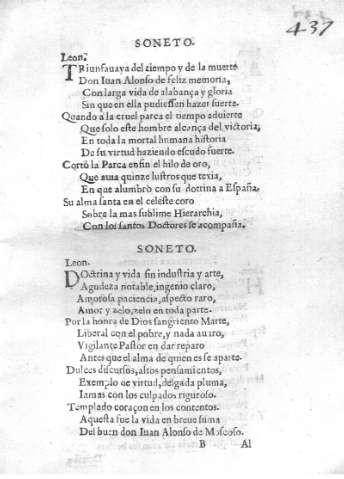 437
SONETO.
Leon.
TRiunfauaya del tiempo y de la muerte
Don Iuan Alonso de feliz memoria,
Con larga vida de alabança y gloria
Sin que en ella pudiessen hazer suerte.
Quando a la cruel parca el tiempo aduierte
Que solo este hombre alcança del victoria,
En toda la mortal humana historia
De su virtud haziendo escudo fuerte.
Cortò la Parca enfin el hilo de oro,
Que auia quinze lustros que texia,
En que alumbrò con su dottina a España.
Su alma santa en el celeste coro
Sobre la mas sublime Hierarchia,
Con los santos Doctores se acompaña.
SONETO.
Leon.
DOctrina y vida sin industria y arte,
Agudeza notable, ingenio claro,
Amorosa paciencia, aspecto raro,
Amor y zelo, zelo en toda parte.
Por la honra de Dios sangriento Marte,
Liberal con el pobre, y nada auaro,
Vigilante Pastor en dar reparo
Antes que el alma de quien es se aparte.
Dulces discursos, altos pensamientos,
Exemplo de virtud, delgada pluma,
Iamas con los culpados riguroso.
Templado coraçon en los contentos.
Aquesta fue la vida en breue suma
Del buen don Iuan Alonso de Moscoso.
B Al